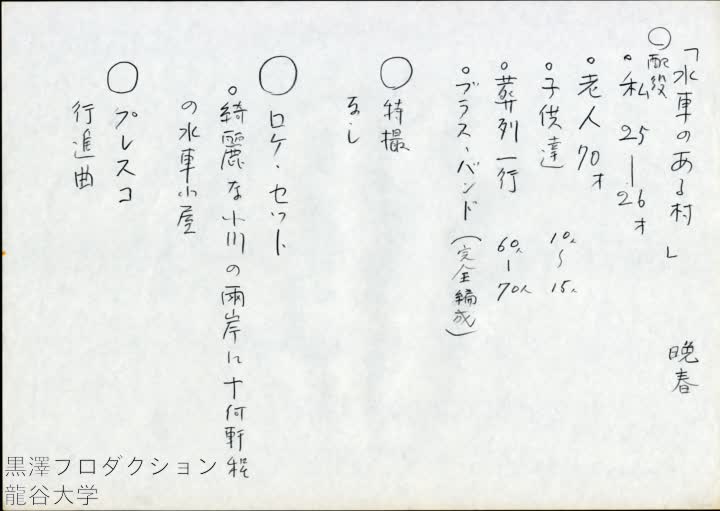 「水車のある村」　晩春
○配役
・私　25―26才
・老人70才
・子供達　10人〜15人
・葬列一行　60人―70人
・ブラス・バンド（完全編成）
○特撮
なし
○ロケ・セット
・綺麗な小川の両岸に十何軒程
の水車小屋
○プレスコ
行進曲
黒澤プロダクション
龍谷大学